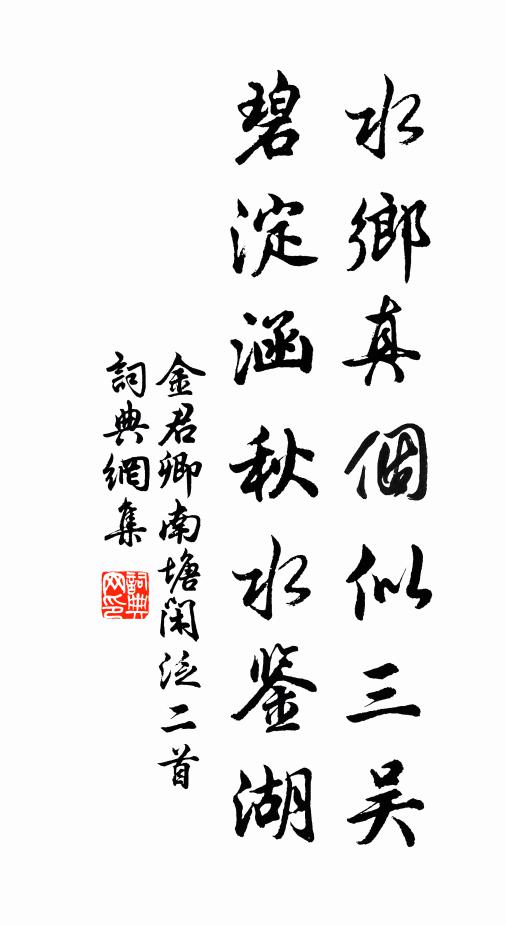 水鄉真個似三吴
碧淀涵秋水鉴湖
金君卿南塘闲泛二首
詞典網集
詞典网印